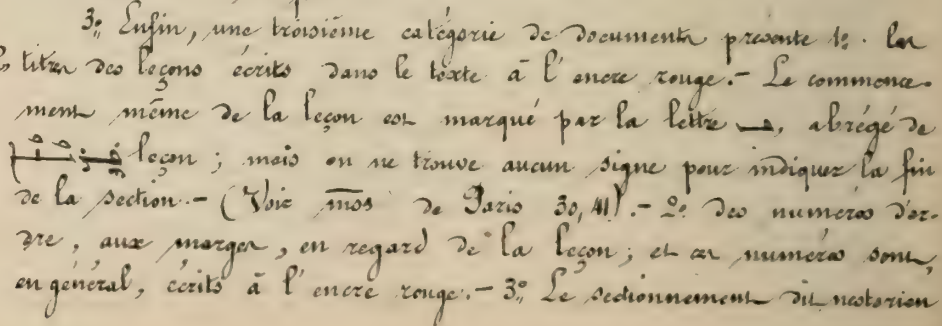 3º Enfin, une troisième catégorie de documents présente 1º. les
titres des leçons écrits dans le texte à l'encre rouge.- Le commence-
ment même de la leçon est marqué par la lettre, abrégé de
leçon ; mais on ne trouve aucun signe pour indiquer la fin
de la section.- (Voir mss de Paris 30, 41).- 2º des numéros d'or-
dre, aux marges, en regard de la leçon; et ces numéros sont,
en général, écrits à l'encre rouge.- 3º Le sectionnement dit nestorien